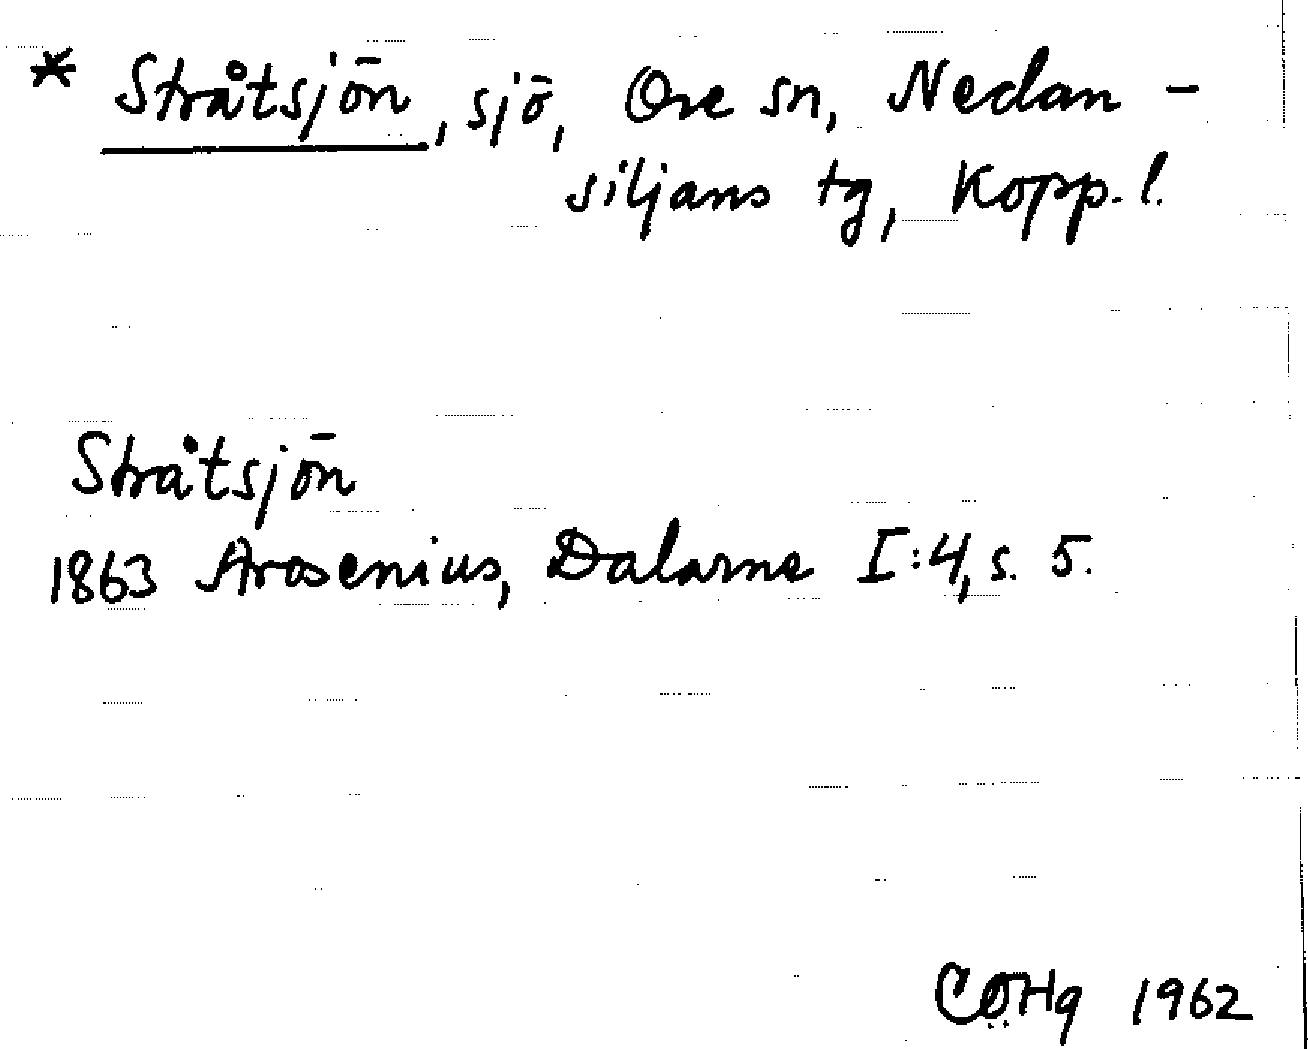 * Stråtsjön, sjö, Ore sn, Nedan-
siljans tg, Kopp. l.
Stråtsjön
1863 Arosenius, Dalarne I:4, s. 5.
CÖHg 1962